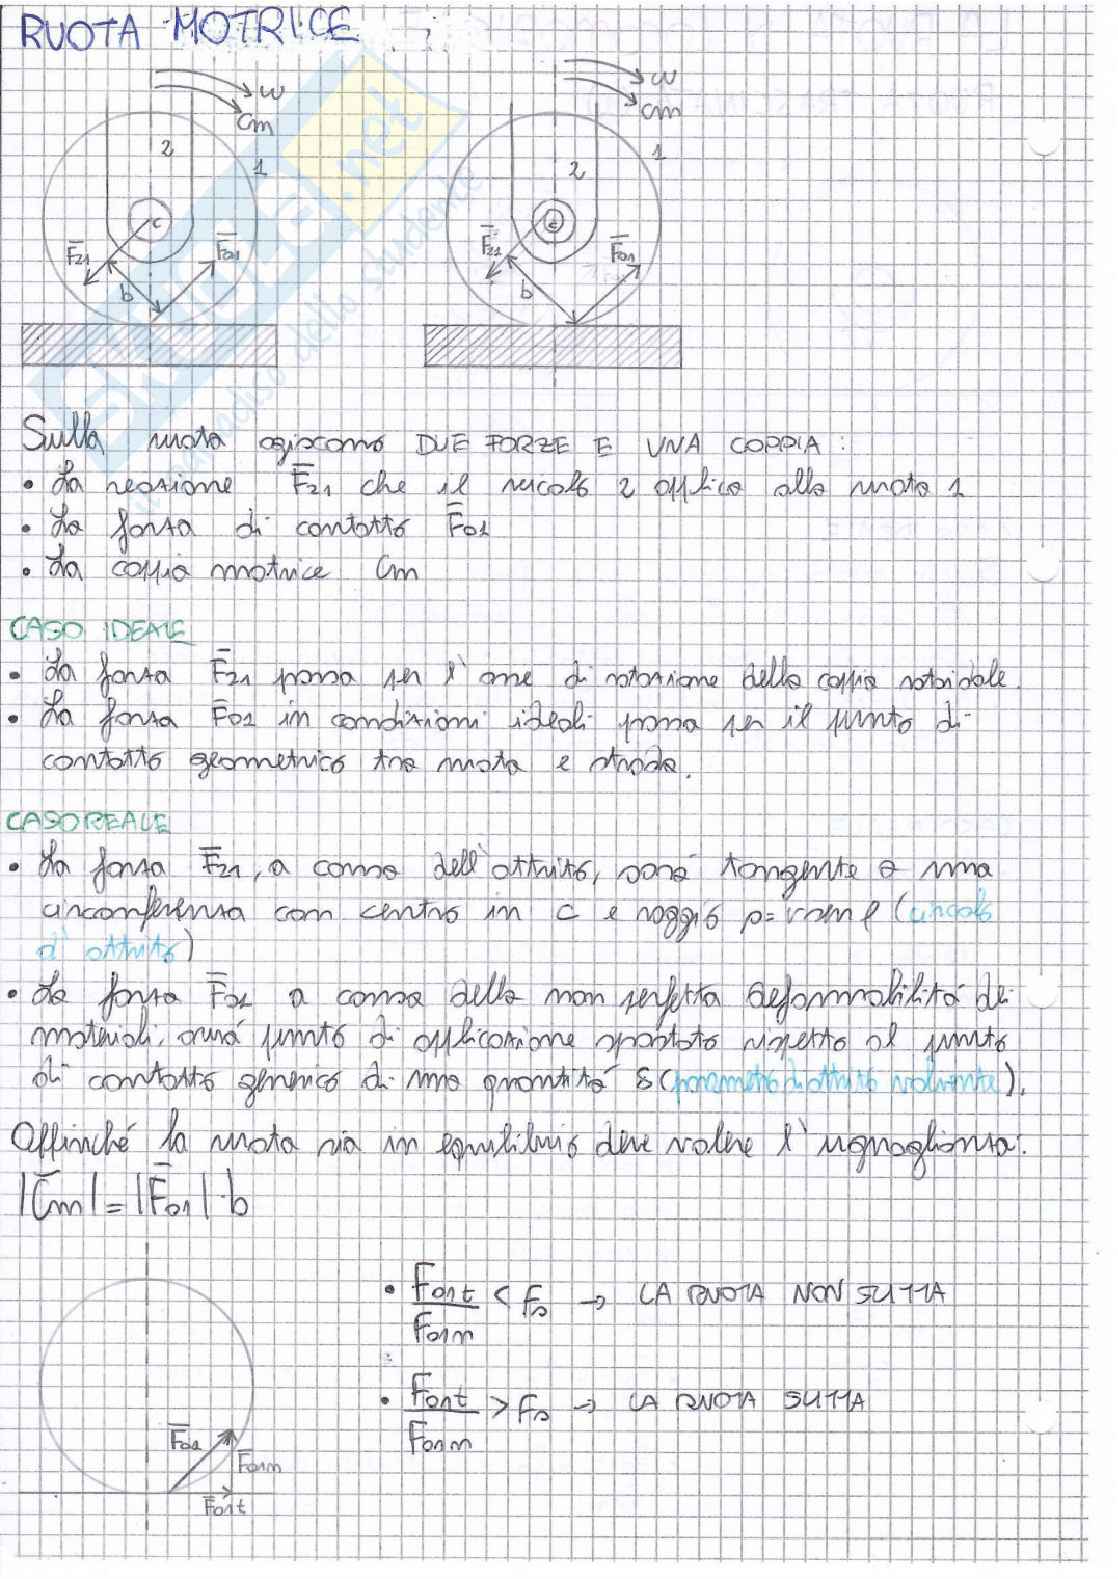 RUOTA MOTRICE
ω
Cm
2
1
c
F̅21
F̅01
b
ω
Cm
2
1
c
F̅21
F̅01
b
Sulla ruota agiscono DUE FORZE E UNA COPPIA:
• La reazione F̅21 che il veicolo 2 applica alla ruota 1
• La forza di contatto F̅01
• La coppia motrice Cm
CASO IDEALE
• La forza F̅21 passa per l'asse di rotazione della coppia rotoidale.
• La forza F̅01 in condizioni ideali passa per il punto di
contatto geometrico tra ruota e strada.
CASO REALE
• La forza F̅21, a causa dell'attrito, sarà tangente a una
circonferenza con centro in C e raggio ρ= (circolo
d'attrito)
• La forza F̅01 a causa della non perfetta deformabilità dei
materiali, avrà punto di applicazione spostato rispetto al punto
di contatto generico di una quantità δ (parametro di attrito volvente).
Affinché la ruota sia in equilibrio deve valere l'uguaglianza:
|C̅m| = |F̅01| · b
• F01t / F01n < fs → LA RUOTA NON SLITTA
• F01t / F01n > fs → LA RUOTA SLITTA
F̅01
F01n
F̅01t